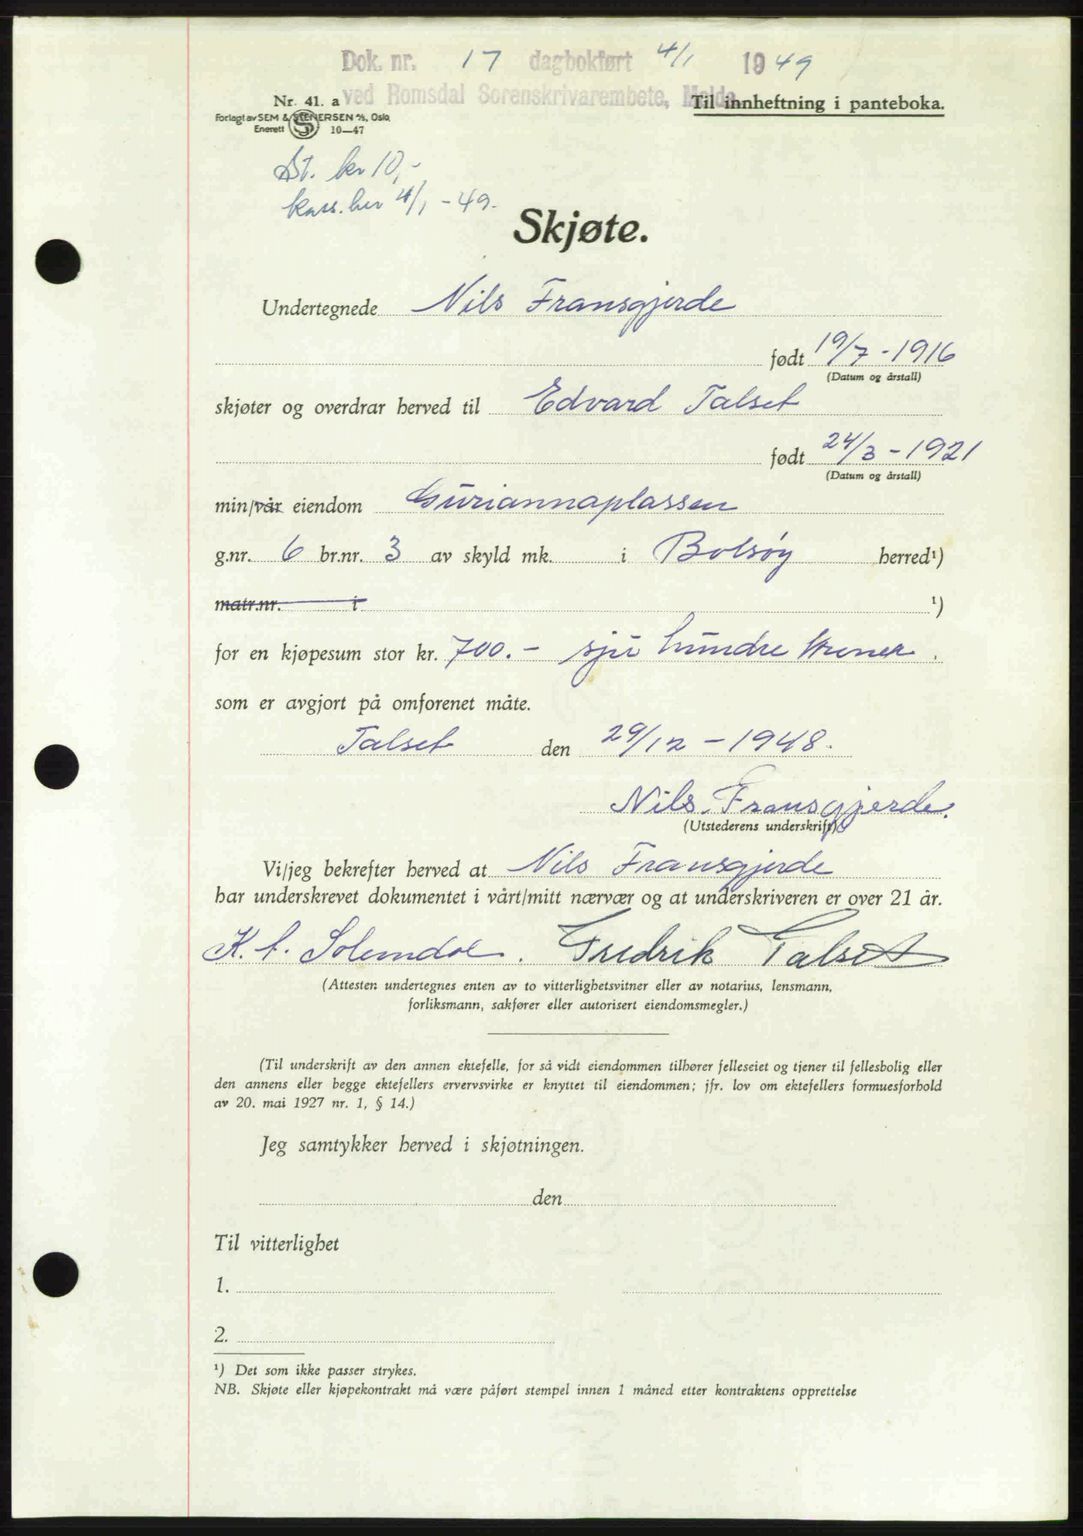 Dok. nr. 17 dagbokført 4/1 1949
ved Romsdal Sorenskrivarembete, Molde
Nr. 41. a
Til innheftning i panteboka.
Forlagt av SEM & STENERSEN A/S, Oslo.
Enerett 10—47
St. kr 10,-
kass. her 4/1 - 49.
Skjøte.
Undertegnede Nils Fransgjerde
født 19/7 - 1916
(Datum og årstall)
skjøter og overdrar herved til Edvard Talset
født 24/3 - 1921
(Datum og årstall)
min/vår eiendom Guriannaplassen
g.nr. 6 br.nr. 3 av skyld mk. i Bolsøy herred¹)
matr.nr. i ¹)
for en kjøpesum stor kr. 700.- sju hundre kroner.
som er avgjort på omforenet måte.
Talset den 29/12 - 1948.
Nils Fransgjerde.
(Utstederens underskrift)
Vi/jeg bekrefter herved at Nils Fransgjerde
har underskrevet dokumentet i vårt/mitt nærvær og at underskriveren er over 21 år.
K. Solemdal. Fredrik Talset
(Attesten undertegnes enten av to vitterlighetsvitner eller av notarius, lensmann,
forliksmann, sakfører eller autorisert eiendomsmegler.)
(Til underskrift av den annen ektefelle, for så vidt eiendommen tilhører felleseiet og tjener til fellesbolig eller
den annens eller begge ektefellers ervervsvirke er knyttet til eiendommen; jfr. lov om ektefellers formuesforhold
av 20. mai 1927 nr. 1, § 14.)
Jeg samtykker herved i skjøtningen.
den
Til vitterlighet
1.
2.
¹) Det som ikke passer strykes.
NB. Skjøte eller kjøpekontrakt må være påført stempel innen 1 måned etter kontraktens opprettelse